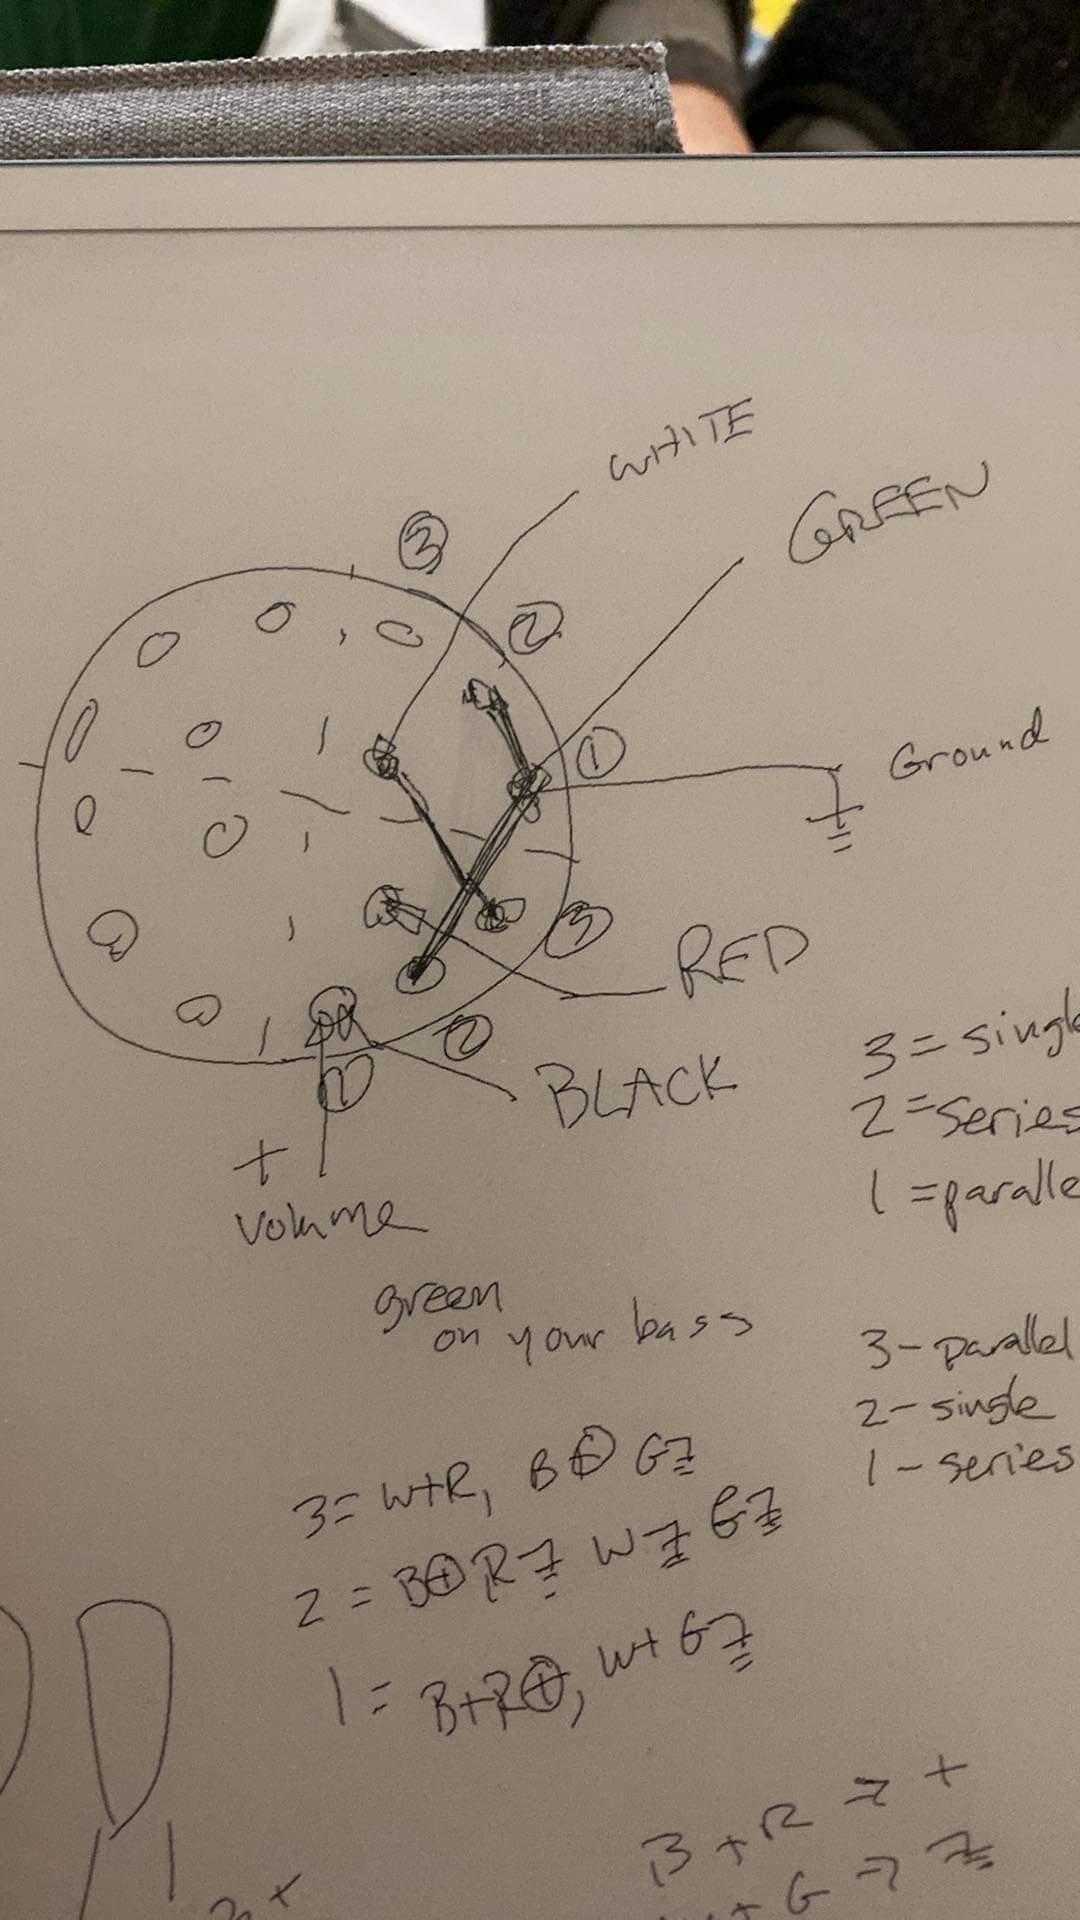 WHITE
GREEN
③
②
①
Ground
③
RED
②
①
BLACK
+
volume
3 = singl
2 = series
1 = paralle
green
on your bass
3 - parallel
2 - single
1 - series
3 = W+R, B⊕ G⏚
2 = B⊕ R⏚ W⏚ G⏚
1 = B+R⊕, W+G⏚
B + R ⇒ +
+ G ⇒ ⏚